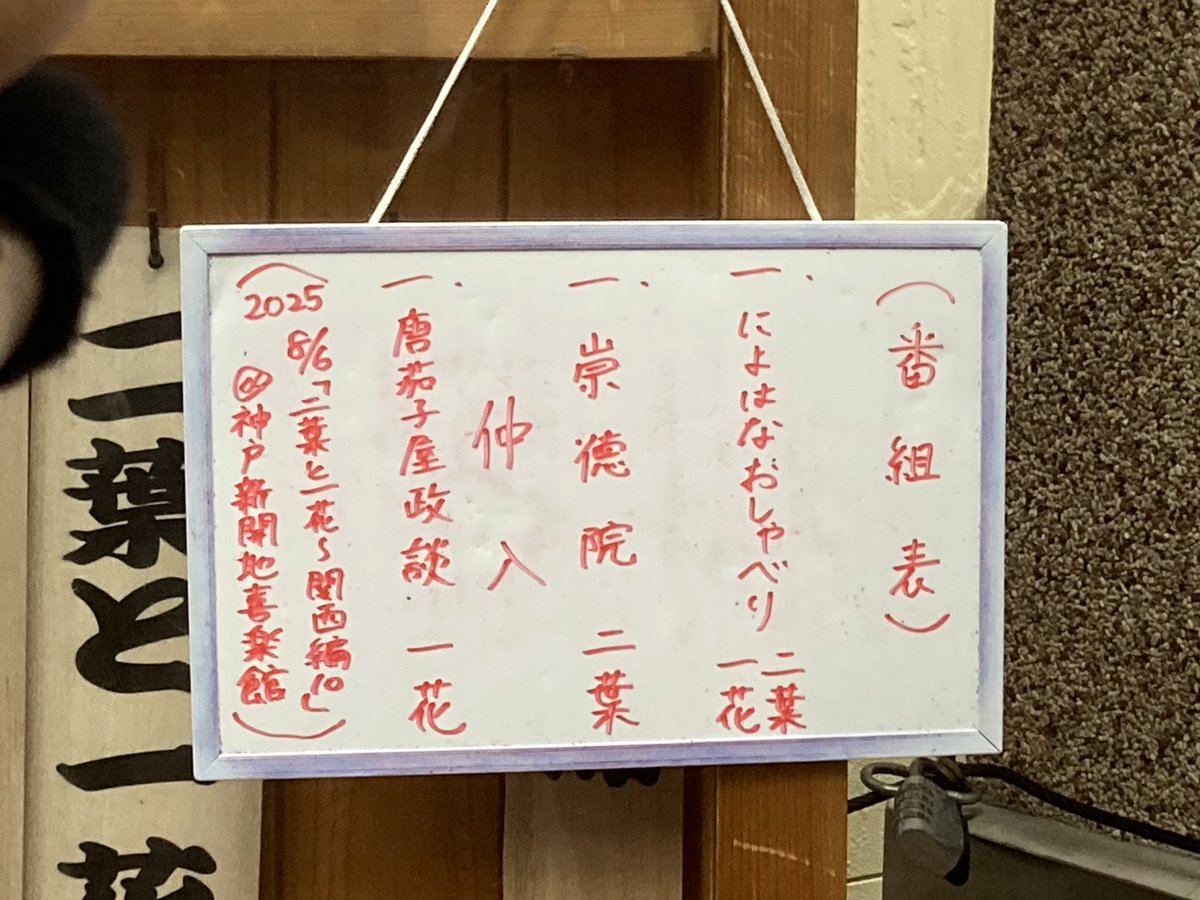 （番組表）
一、によはなおしゃべり 二葉 一花
一、崇徳院 二葉
仲入
一、唐茄子屋政談 一花
（2025 8/6「二葉と一花〜関西編10」
@神戸新開地喜楽館）
二葉と一花